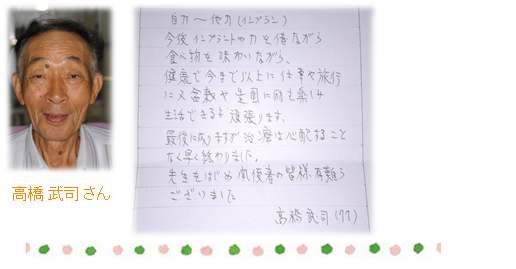 自力～他力(インプラン)
今後インプラントの力を借ながら
食べ物を味わいながら、
健康で今まで以上に仕事や旅行
に又盆栽や菜園に励を楽しみ
生活できるよう頑張ります。
最後に成りますが治療は心配すること
なく早く終わりました。
先生をはじめ関係者の皆様有難う
ございました
高橋武司(77)
高橋 武司 さん